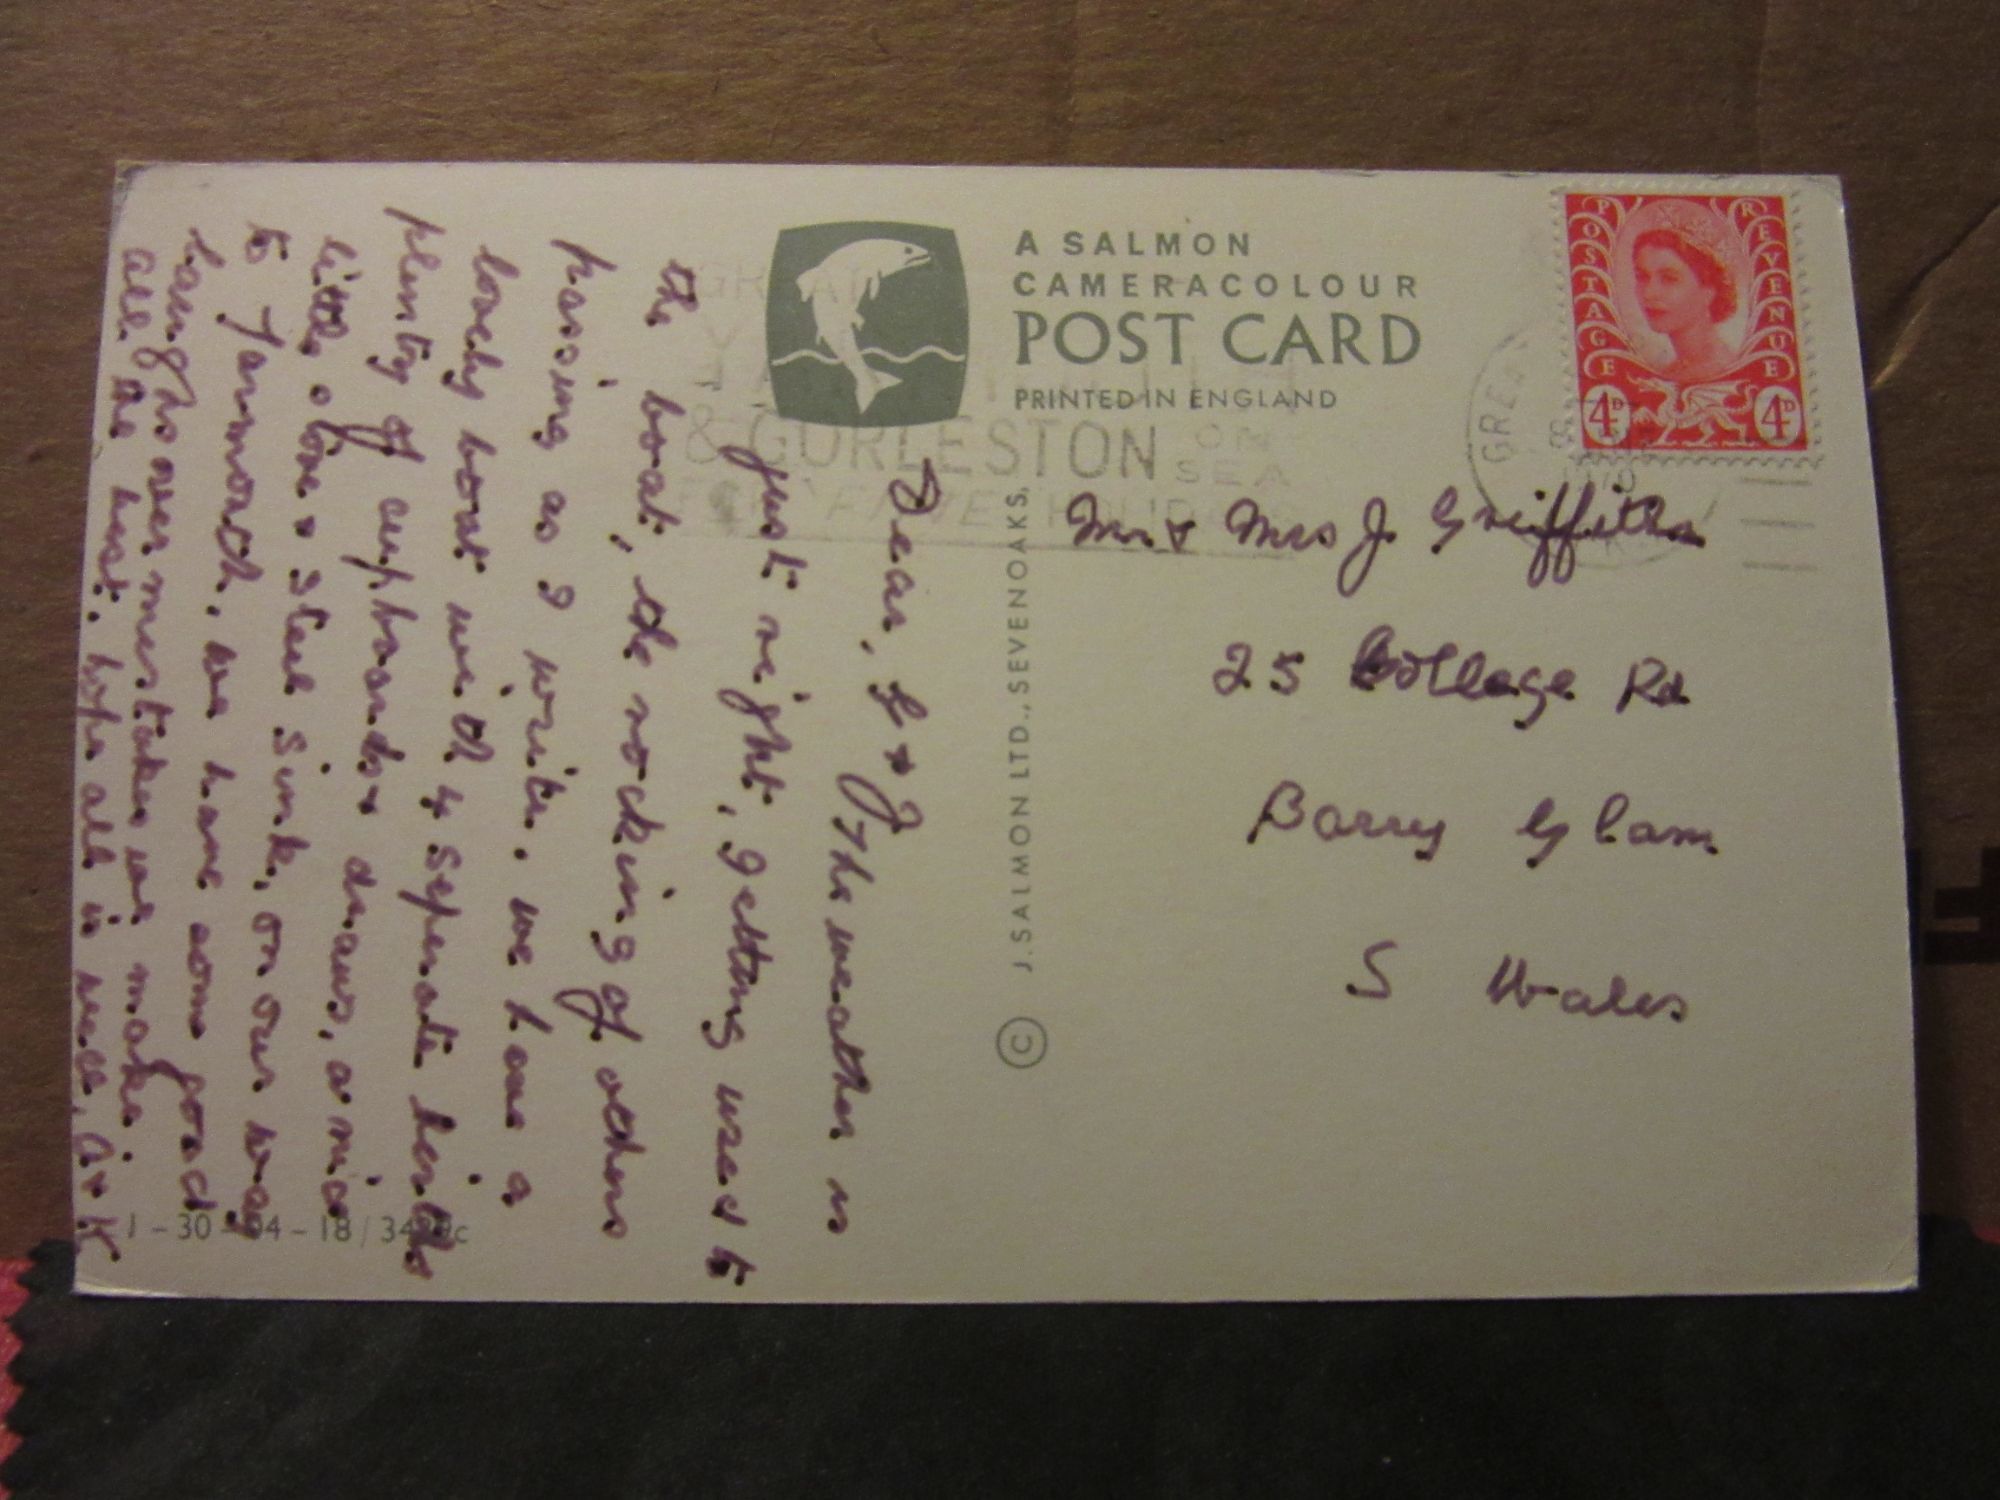 A SALMON
CAMERACOLOUR
POST CARD
PRINTED IN ENGLAND
POSTAGE
REVENUE
4D
4D
GREAT
YARMOUTH
& GORLESTON ON
SEA
HOLIDAYS
GREA
1970
Mr & Mrs J. Griffiths
25 College Rd
Barry Glam
S Wales
J. SALMON LTD., SEVENOAKS, ©
Dear, &
The weather is
just right, getting used to
the boat, the rocking of others
passing as I write. we have a
lovely boat with 4 seperate births
plenty of cupboards & draws, a nice
little stove & steel sink, on our way
to Yarmouth. we have some good
laughs over mistakes we make.
all the best. hope all is well, A & K
1-30-04-18/34 c